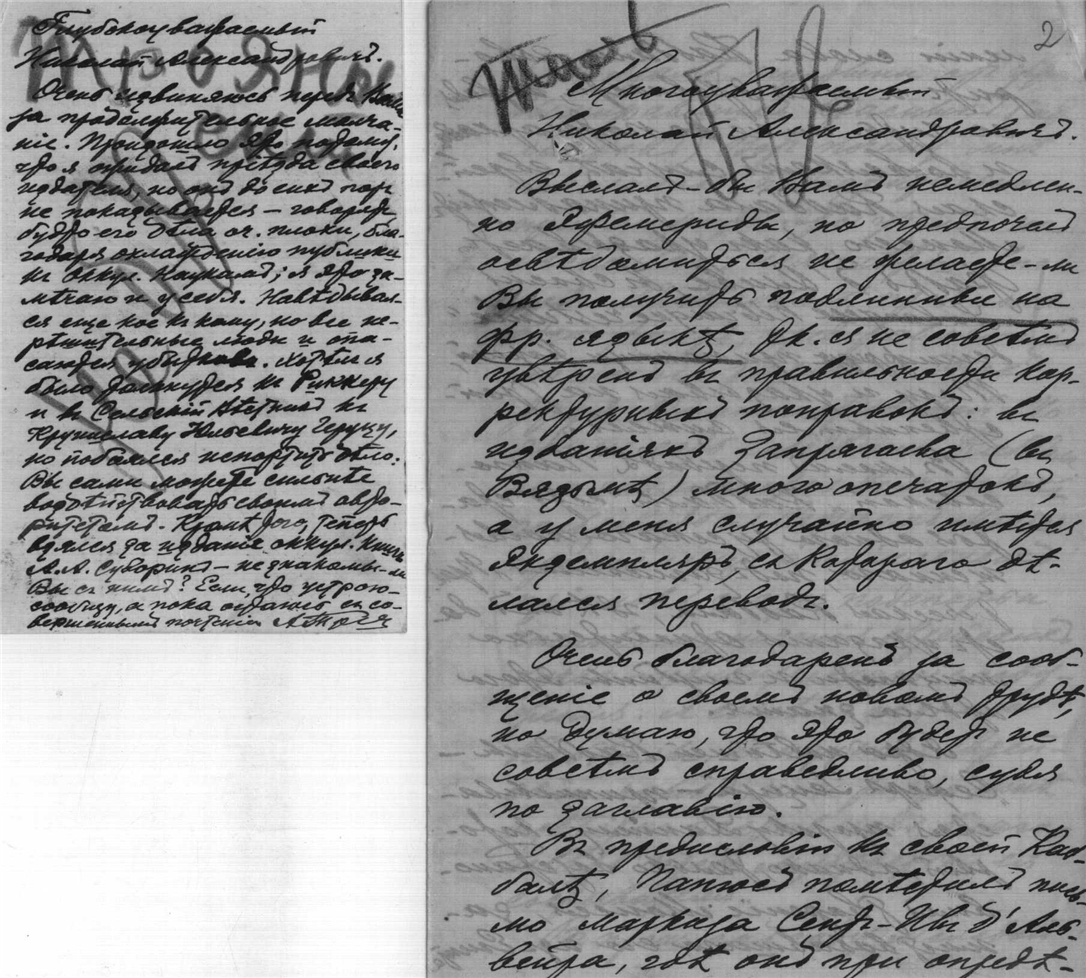 Глубокоуважаемый
Николай Александровичъ.
Трояно
Очень извиняюсь передъ Вами
за продолжительное молча-
ніе. Произошло это потому,
что я ожидалъ пріѣзда своего
издателя, но онъ до сихъ поръ
не показывается – говорятъ,
будто его дѣла оч. плохи, бла-
годаря охлажденію публики
къ оккул. наукамъ; я это за-
мѣчаю и у себя. Навѣдывал-
ся еще кое къ кому, но все не-
рѣшительные люди и опа-
саются убытковъ. Хотѣлъ я
было толкнуться къ Риккеру
и въ Сельскій Вѣстникъ къ
Крунславу Юльевичу Геруцу,
но побоялся испортить дѣло.
Вы сами можете сильнѣе
воздѣйствовать своимъ авто-
ритетомъ. Кромѣ того, теперь
взялся за изданія оккул. книгъ
А.А. Суворинъ – не знакомы-ли
Вы съ нимъ? Если, что устрою-
сообщу, а пока остаюсь съ со-
вершеннымъ почтеніемъ А.Троя
2
Многоуважаемый
Николай Александровичъ.
Выслалъ-бы Вамъ немедлен-
но Эфемериды, но предпочелъ
освѣдомиться не желаете-ли
Вы получить подлинные на
фр. языкѣ, тк. я не совсѣмъ
увѣренъ въ правильности кор-
ректурныхъ поправокъ: въ
изданіяхъ Запрягаева (въ
Вязьмѣ) много опечатокъ,
а у меня случайно имѣется
экземпляръ, съ котораго дѣ-
лался переводъ.
Очень благодаренъ за сооб-
щеніе о своемъ новомъ трудѣ,
но думаю, что это будетъ не
совсѣмъ справедливо, судя
по заглавію.
Въ предисловіи къ своей Каб-
балѣ, Папюсъ помѣстилъ пись-
мо маркиза Сентъ-Ивъ д'Аль-
вейдра, гдѣ онъ при опредѣ-